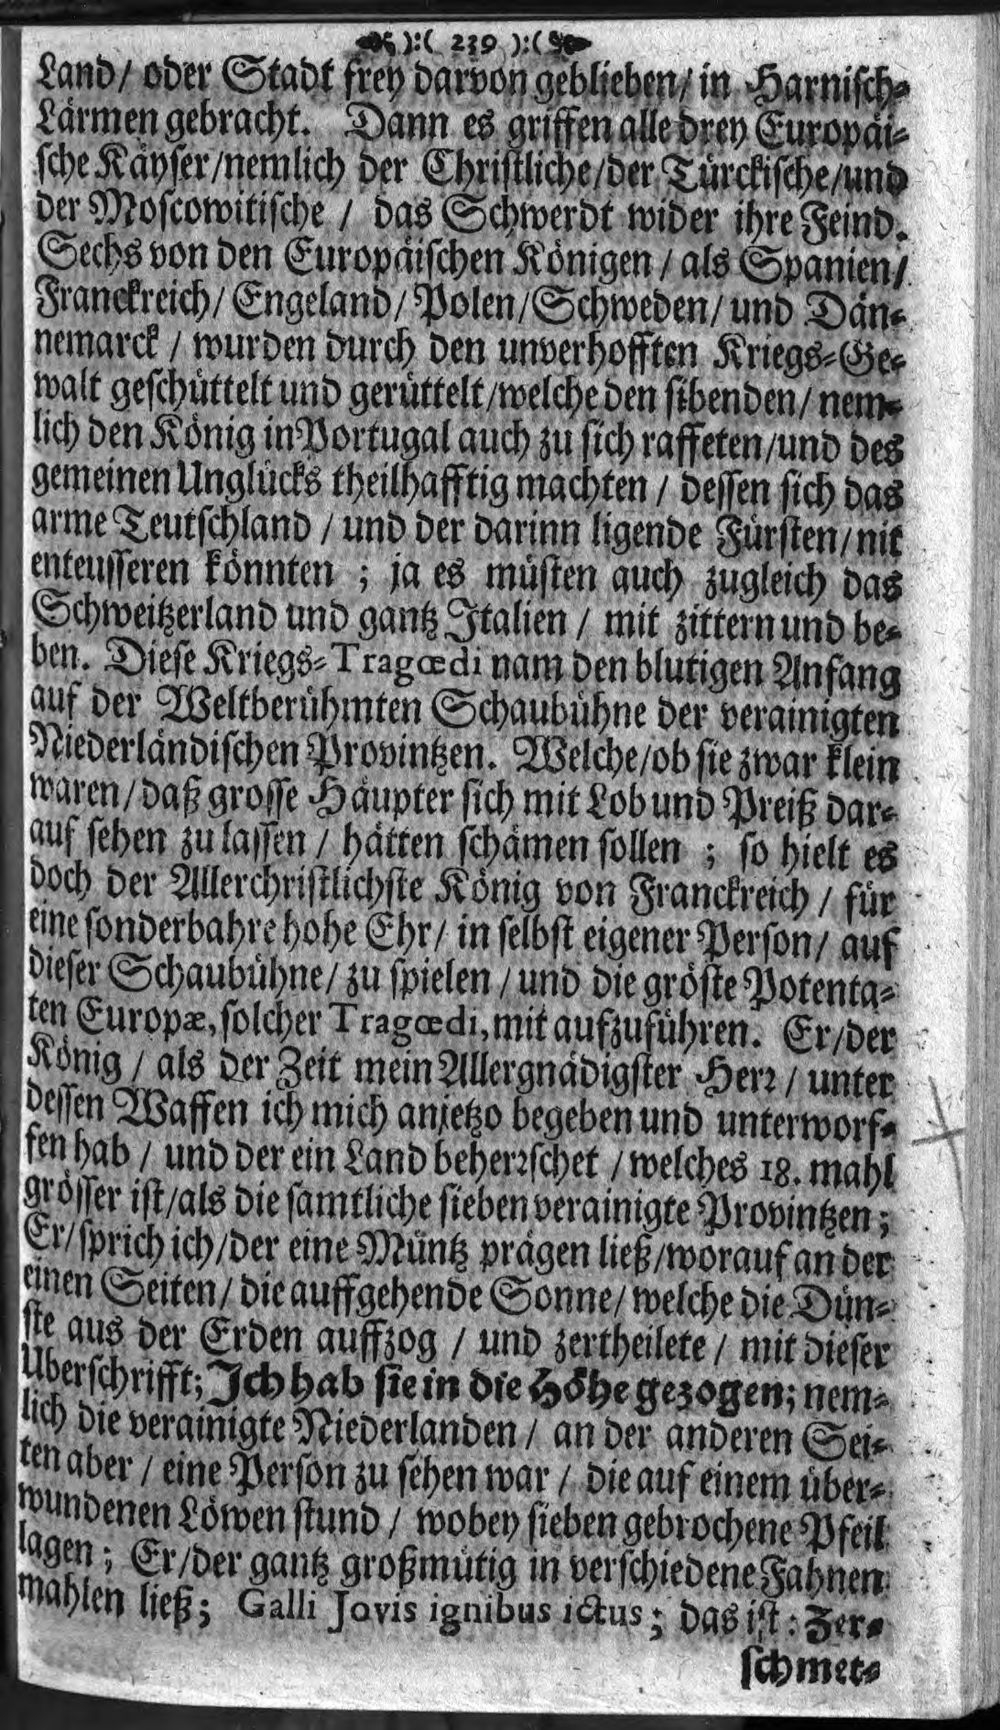 ):( 239 ):(
Land / oder Stadt frey darvon geblieben / in Harnisch-
Lärmen gebracht. Dann es griffen alle drey Europäi-
sche Käyser / nemlich der Christliche / der Türckische / und
der Moscowitische / das Schwerdt wider ihre Feind.
Sechs von den Europäischen Königen / als Spanien /
Franckreich / Engeland / Polen / Schweden / und Dän-
nemarck / wurden durch den unverhofften Kriegs-Ge-
walt geschüttelt und gerüttelt / welche den sibenden / nem-
lich den König in Portugal auch zu sich raffeten / und des
gemeinen Unglücks theilhafftig machten / dessen sich das
arme Teutschland / und der darinn ligende Fürsten / nit
enteusseren könnten ; ja es müsten auch zugleich das
Schweitzerland und gantz Italien / mit zittern und be-
ben. Diese Kriegs-Tragœdi nam den blutigen Anfang
auf der Weltberühmten Schaubühne der verainigten
Niederländischen Provintzen. Welche / ob sie zwar klein
waren / daß grosse Häupter sich mit Lob und Preiß dar-
auf sehen zu lassen / hätten schämen sollen ; so hielt es
doch der Allerchristlichste König von Franckreich / für
eine sonderbahre hohe Ehr / in selbst eigener Person / auf
dieser Schaubühne / zu spielen / und die gröste Potenta-
ten Europæ, solcher Tragœdi, mit aufzuführen. Er / der
König / als der Zeit mein Allergnädigster Herr / unter
dessen Waffen ich mich anjetzo begeben und unterworf-
fen hab / und der ein Land beherrschet / welches 18. mahl
grösser ist / als die samtliche sieben verainigte Provintzen ;
Er / sprich ich / der eine Müntz prägen ließ / worauf an der
einen Seiten / die auffgehende Sonne / welche die Dün-
ste aus der Erden auffzog / und zertheilete / mit dieser
Uberschrifft; Ich hab sie in die Höhe gezogen; nem-
lich die verainigte Niederlanden / an der anderen Sei-
ten aber / eine Person zu sehen war / die auf einem über-
wundenen Löwen stund / wobey sieben gebrochene Pfeil
lagen ; Er / der gantz großmütig in verschiedene Fahnen
mahlen ließ; Galli Jovis ignibus ictus ; das ist : Zer-
schmet-